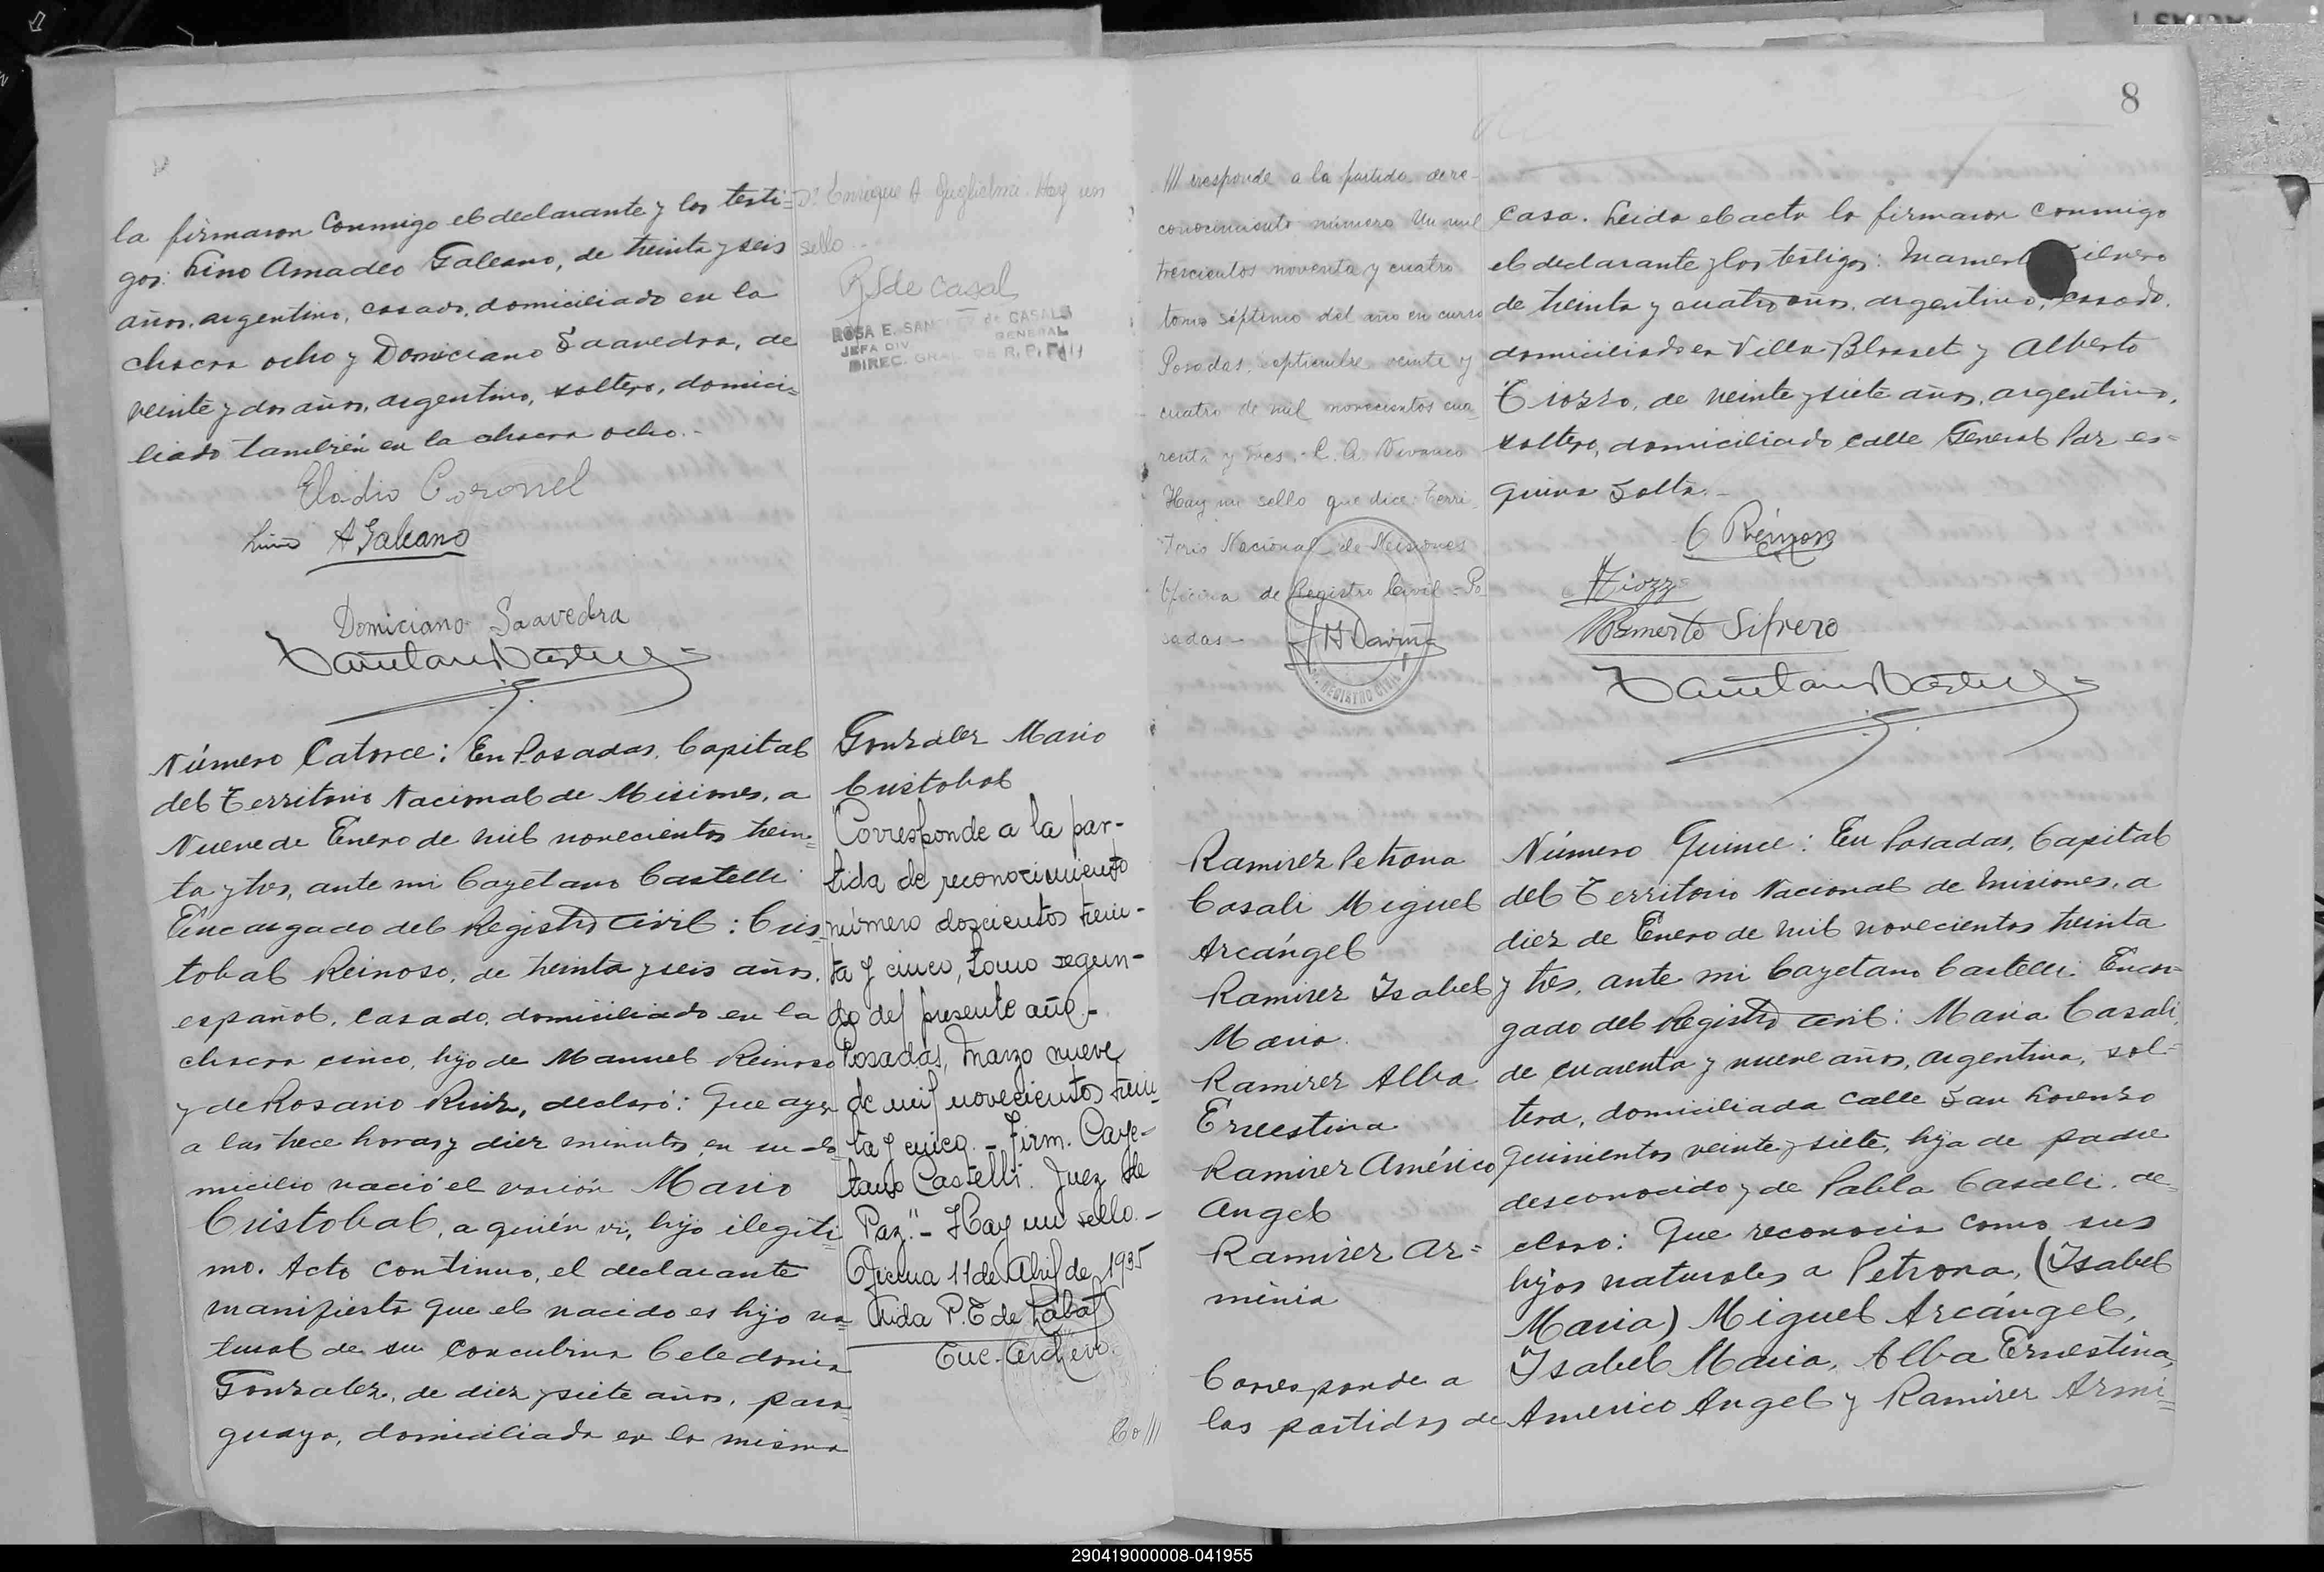 8
la firmaron conmigo el declarante y los testi=
gos: Lino Amadeo Galeano, de treinta y seis
años, argentino, casado, domiciliado en la
chacra ocho y Domiciano Saavedra, de
veinte y dos años, argentino, soltero, domici=
liado también en la chacra ocho.-
Eladio Coronel
Lino A Galeano
Domiciano Saavedra
Dr. Enrique A Guglielmi. Hay un
sello
R S de Casal
ROSA E. SAN de CASALS
JEFA DIV GENERAL
DIREC. GRAL DE R. P.
Número Catorce: En Posadas, Capital
del Territorio Nacional de Misiones, a
Nueve de Enero de mil novecientos trein=
ta y tres, ante mi Cayetano Castelli
Encargado del Registro Civil: Cris-
tobal Reinoso, de treinta y seis años,
español, casado, domiciliado en la
chacra cinco, hijo de Manuel Reinoso
y de Rosario Ruiz, declaró: Que ayer
a las trece horas y diez minutos, en su do
micilio nació el varón Mario
Cristobal, a quién vi, hijo ilegiti
mo. Acto continuo, el declarante
manifiesta que el nacido es hijo na=
tural de su concubina Celedonia
Gonzalez, de diez y siete años, para=
guaya, domiciliada en la misma
González Mario
Cristobal
Corresponde a la par-
tida de reconocimiento
número doscientos trein-
ta y cinco, tomo segun-
do del presente año-
Posadas, Marzo nueve
de mil novecientos trein-
ta y cinco.- Firm. Caye-
tano Castelli. Juez de
Paz."- Hay un sello.-
Oficina 11 de Abril de 1935
Aida P. T de Labat
Enc. Archivo.
Co///
/// rresponde a la partida de re-
conocimiento número Un mil
trescientos noventa y cuatro
tomo séptimo del año en curso
Posadas, septiembre veinte y
cuatro de mil novecientos cua
renta y tres.- C. A. Vivanco
Hay un sello que dice: Terri
torio Nacional de Misiones
Oficina de Registro Civil - Po
sadas-
REGISTRO CIVIL
casa. Leida el acta la firmaron conmigo
el declarante y los testigos:
de treinta y cuatro años, argentino, casado,
domiciliado en Villa Blosset y Alberto
Tiozzo, de veinte y siete años, argentino,
soltero, domiciliado calle General Paz es=
quina Salta.-
C Reinoso
Tiozzo
Mamerto Silvero
Ramirez Petrona
Casali Miguel
Arcángel
Ramirez Isabel
Maria.
Ramirez Alba
Ernestina
Ramirez Américo
Angel
Ramirez Ar=
minia
Corresponde a
las partidas de
Número Quince: En Posadas, Capital
del Territorio Nacional de Misiones, a
diez de Enero de mil novecientos treinta
y tres, ante mi Cayetano Castelli. Encar=
gado del Registro Civil: Maria Casali,
de cuarenta y nueve años, argentina, sol=
tera, domiciliada calle San Lorenzo
quinientos veinte y siete, hija de padre
desconocido y de Pabla Casali, de=
claro: Que reconocia como sus
hijos naturales a Petrona, (Isabel
Maria) Miguel Arcángel,
Isabel Maria, Alba Ernestina,
Americo Angel y Ramirez Armi=
290419000008-041955